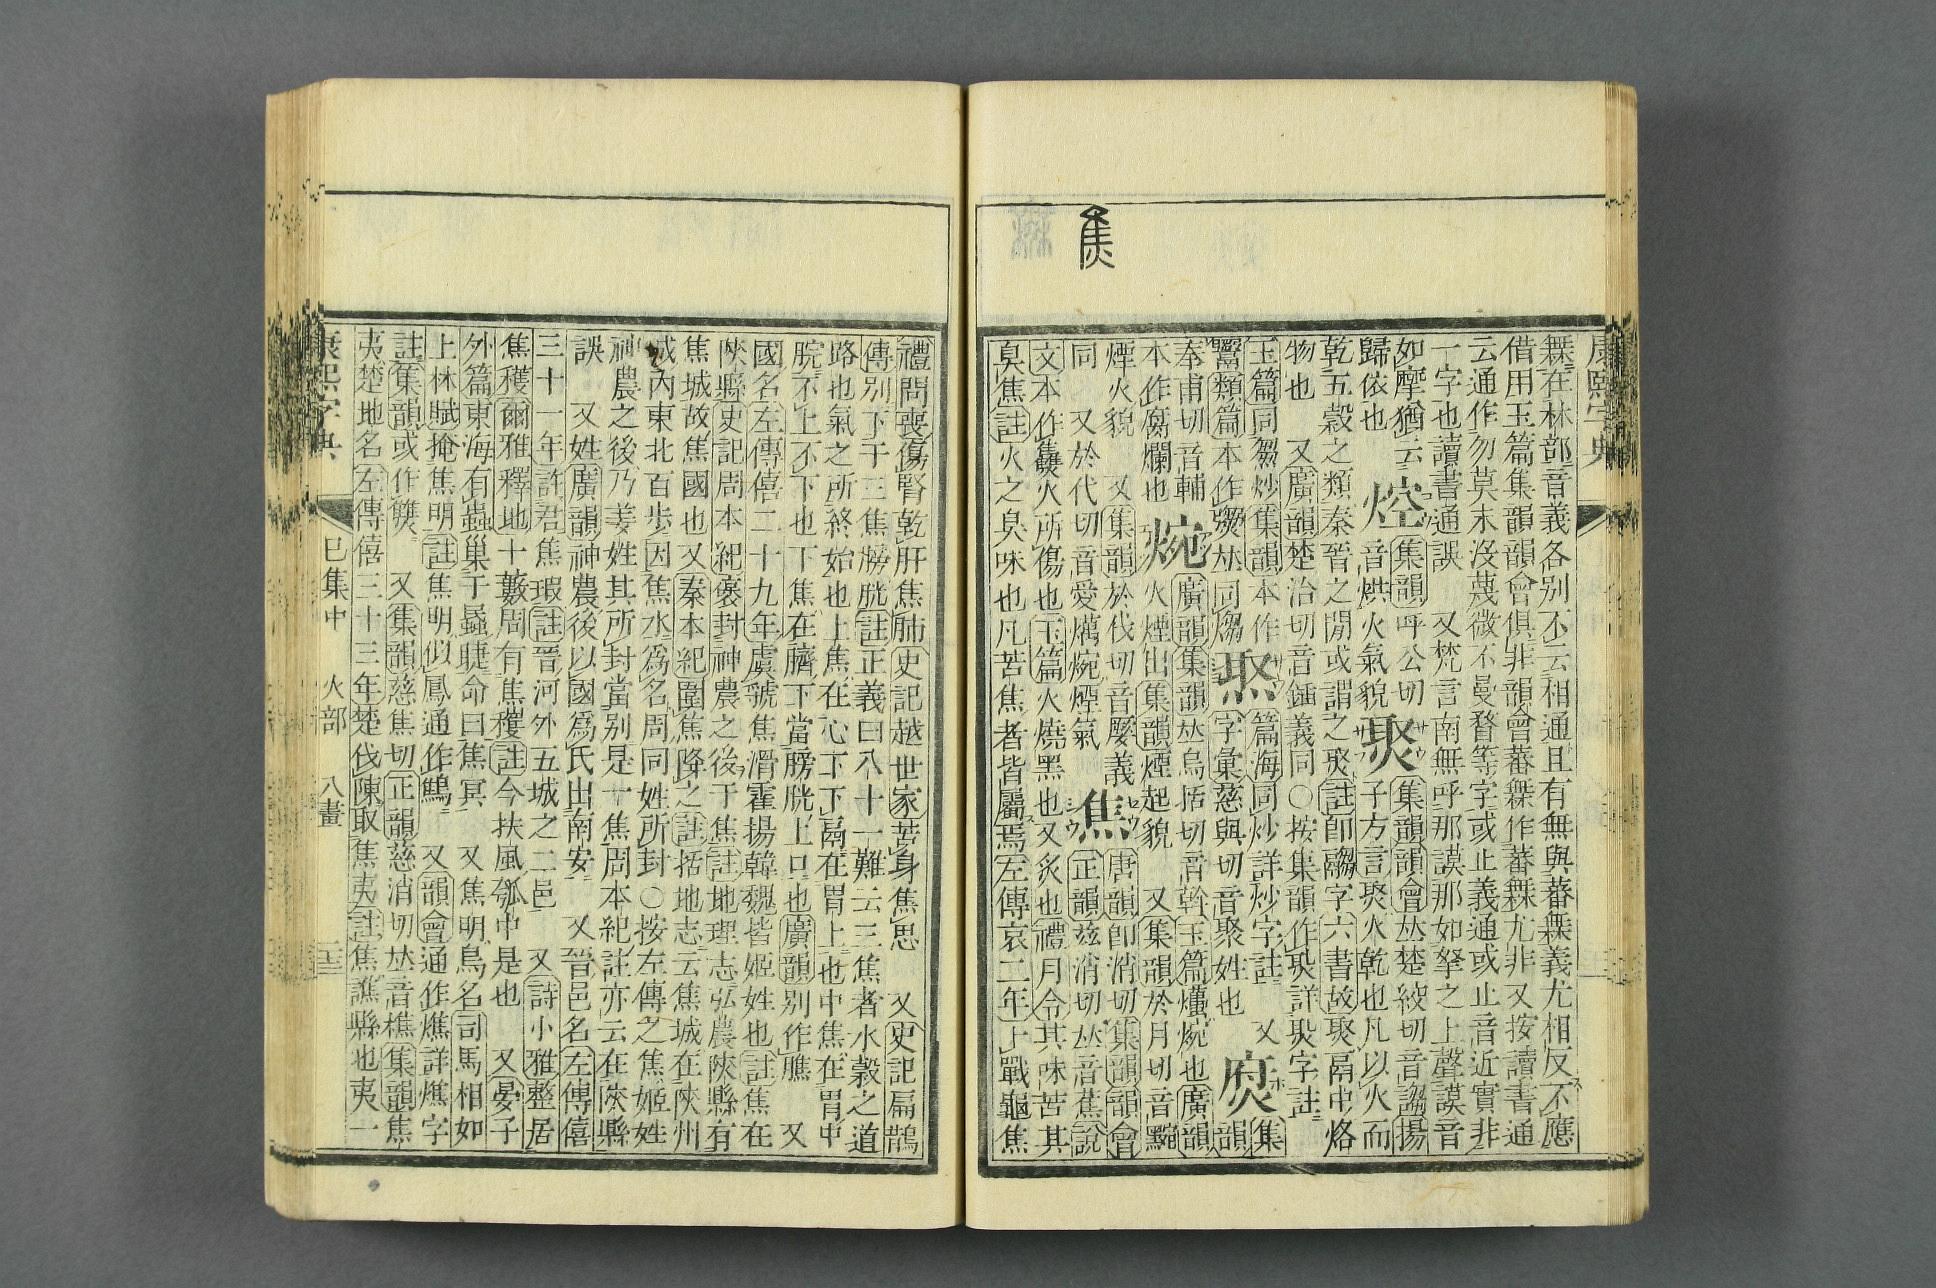 康熙字典
𤋳
橆在林部音義各別不云相通且有無與蕃橆義尤相反不應
借用玉篇集韻韻會俱非韻會蕃橆作蕃橆尤非又按讀書通
云通作勿莫末沒蔑微不曼瞀等字或止義通或止音近實非
一字也讀書通誤 又梵言南無呼那謨那如拏之上聲謨音
如摩猶云 焢 集韻呼公切 㷅 集韻韻會𠀤楚絞切音謅揚
歸依也 音烘火氣貌 子方言㷅火乾也凡以火而
乾五穀之類秦晉之閒或謂之㷅註卽䰞字六書故㷅鬲中烙
物也 又廣韻楚治切音鍤義同○按集韻作㷅詳㷅字註
玉篇同𤌐炒集韻本作 篇海同炒詳炒字註 又
鬻類篇本作 𠀤同𤌐 字彙慈與切音聚姓也 焤 集韻
奉甫切音輔 焥 廣韻集韻𠀤烏括切音斡玉篇爩焥也廣韻
本作腐爛也 火煙出集韻煙起貌 又集韻於月切音黦
煙火貌 又集韻於伐切音 義 焦 唐韻卽消切集韻韻會
同 又於代切音愛爩焥煙氣 正韻兹消切𠀤音蕉說
文本作𤓪火所傷也玉篇火燒黑也又炙也禮月令其味苦其
臭焦註火之臭味也凡苦焦者皆屬焉左傳哀二年卜戰龜焦
禮問喪傷腎乾肝焦肺史記越世家苦身焦思 又史記扁鵲
傳別下于三焦膀胱註正義曰八十一難云三焦者水穀之道
路也氣之所終始也上焦在心下下鬲在胃上也中焦在胃中
脘不上不下也下焦在臍下當膀胱上口也廣韻別作膲 又
國名左傳僖二十九年虞虢焦滑霍揚韓魏皆姬姓也註焦在
陝縣史記周本紀襃封神農之後于焦註地理志弘農陝縣有
焦城故焦國也又秦本紀圍焦降之註括地志云焦城在陝州
城內東北百步因焦水爲名周同姓所封○按左傳之焦姬姓
神農之後乃姜姓其所封當別是一焦周本紀註亦云在陝縣
誤 又姓廣韻神農後以國爲氏出南安 又晉邑名左傳僖
三十一年許君焦瑕註晉河外五城之二邑 又詩小雅整居
焦穫爾雅釋地十藪周有焦穫註今扶風瓠中是也 又晏子
外篇東海有蟲巢于蟁睫命曰焦冥 又焦明鳥名司馬相如
上林賦掩焦明註焦明似鳳通作鷦 又韻會通作燋詳燋字
註集韻或作㸈 又集韻慈焦切正韻慈消切𠀤音樵集韻焦
夷楚地名左傳僖二十三年楚伐陳取焦夷註焦譙縣也夷一
康熙字典 巳集中 火部 八畫